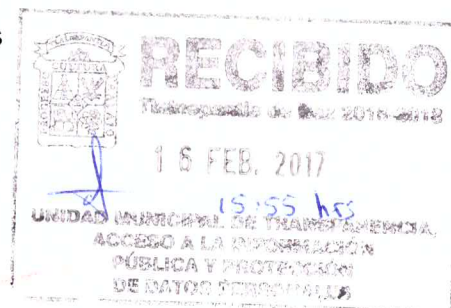 RECIBIDO
Tlalnepantla de Baz 2016-2018
16 FEB. 2017
15:55 hrs
UNIDAD MUNICIPAL DE TRANSPARENCIA,
ACCESO A LA INFORMACIÓN
PÚBLICA Y PROTECCIÓN
DE DATOS PERSONALES